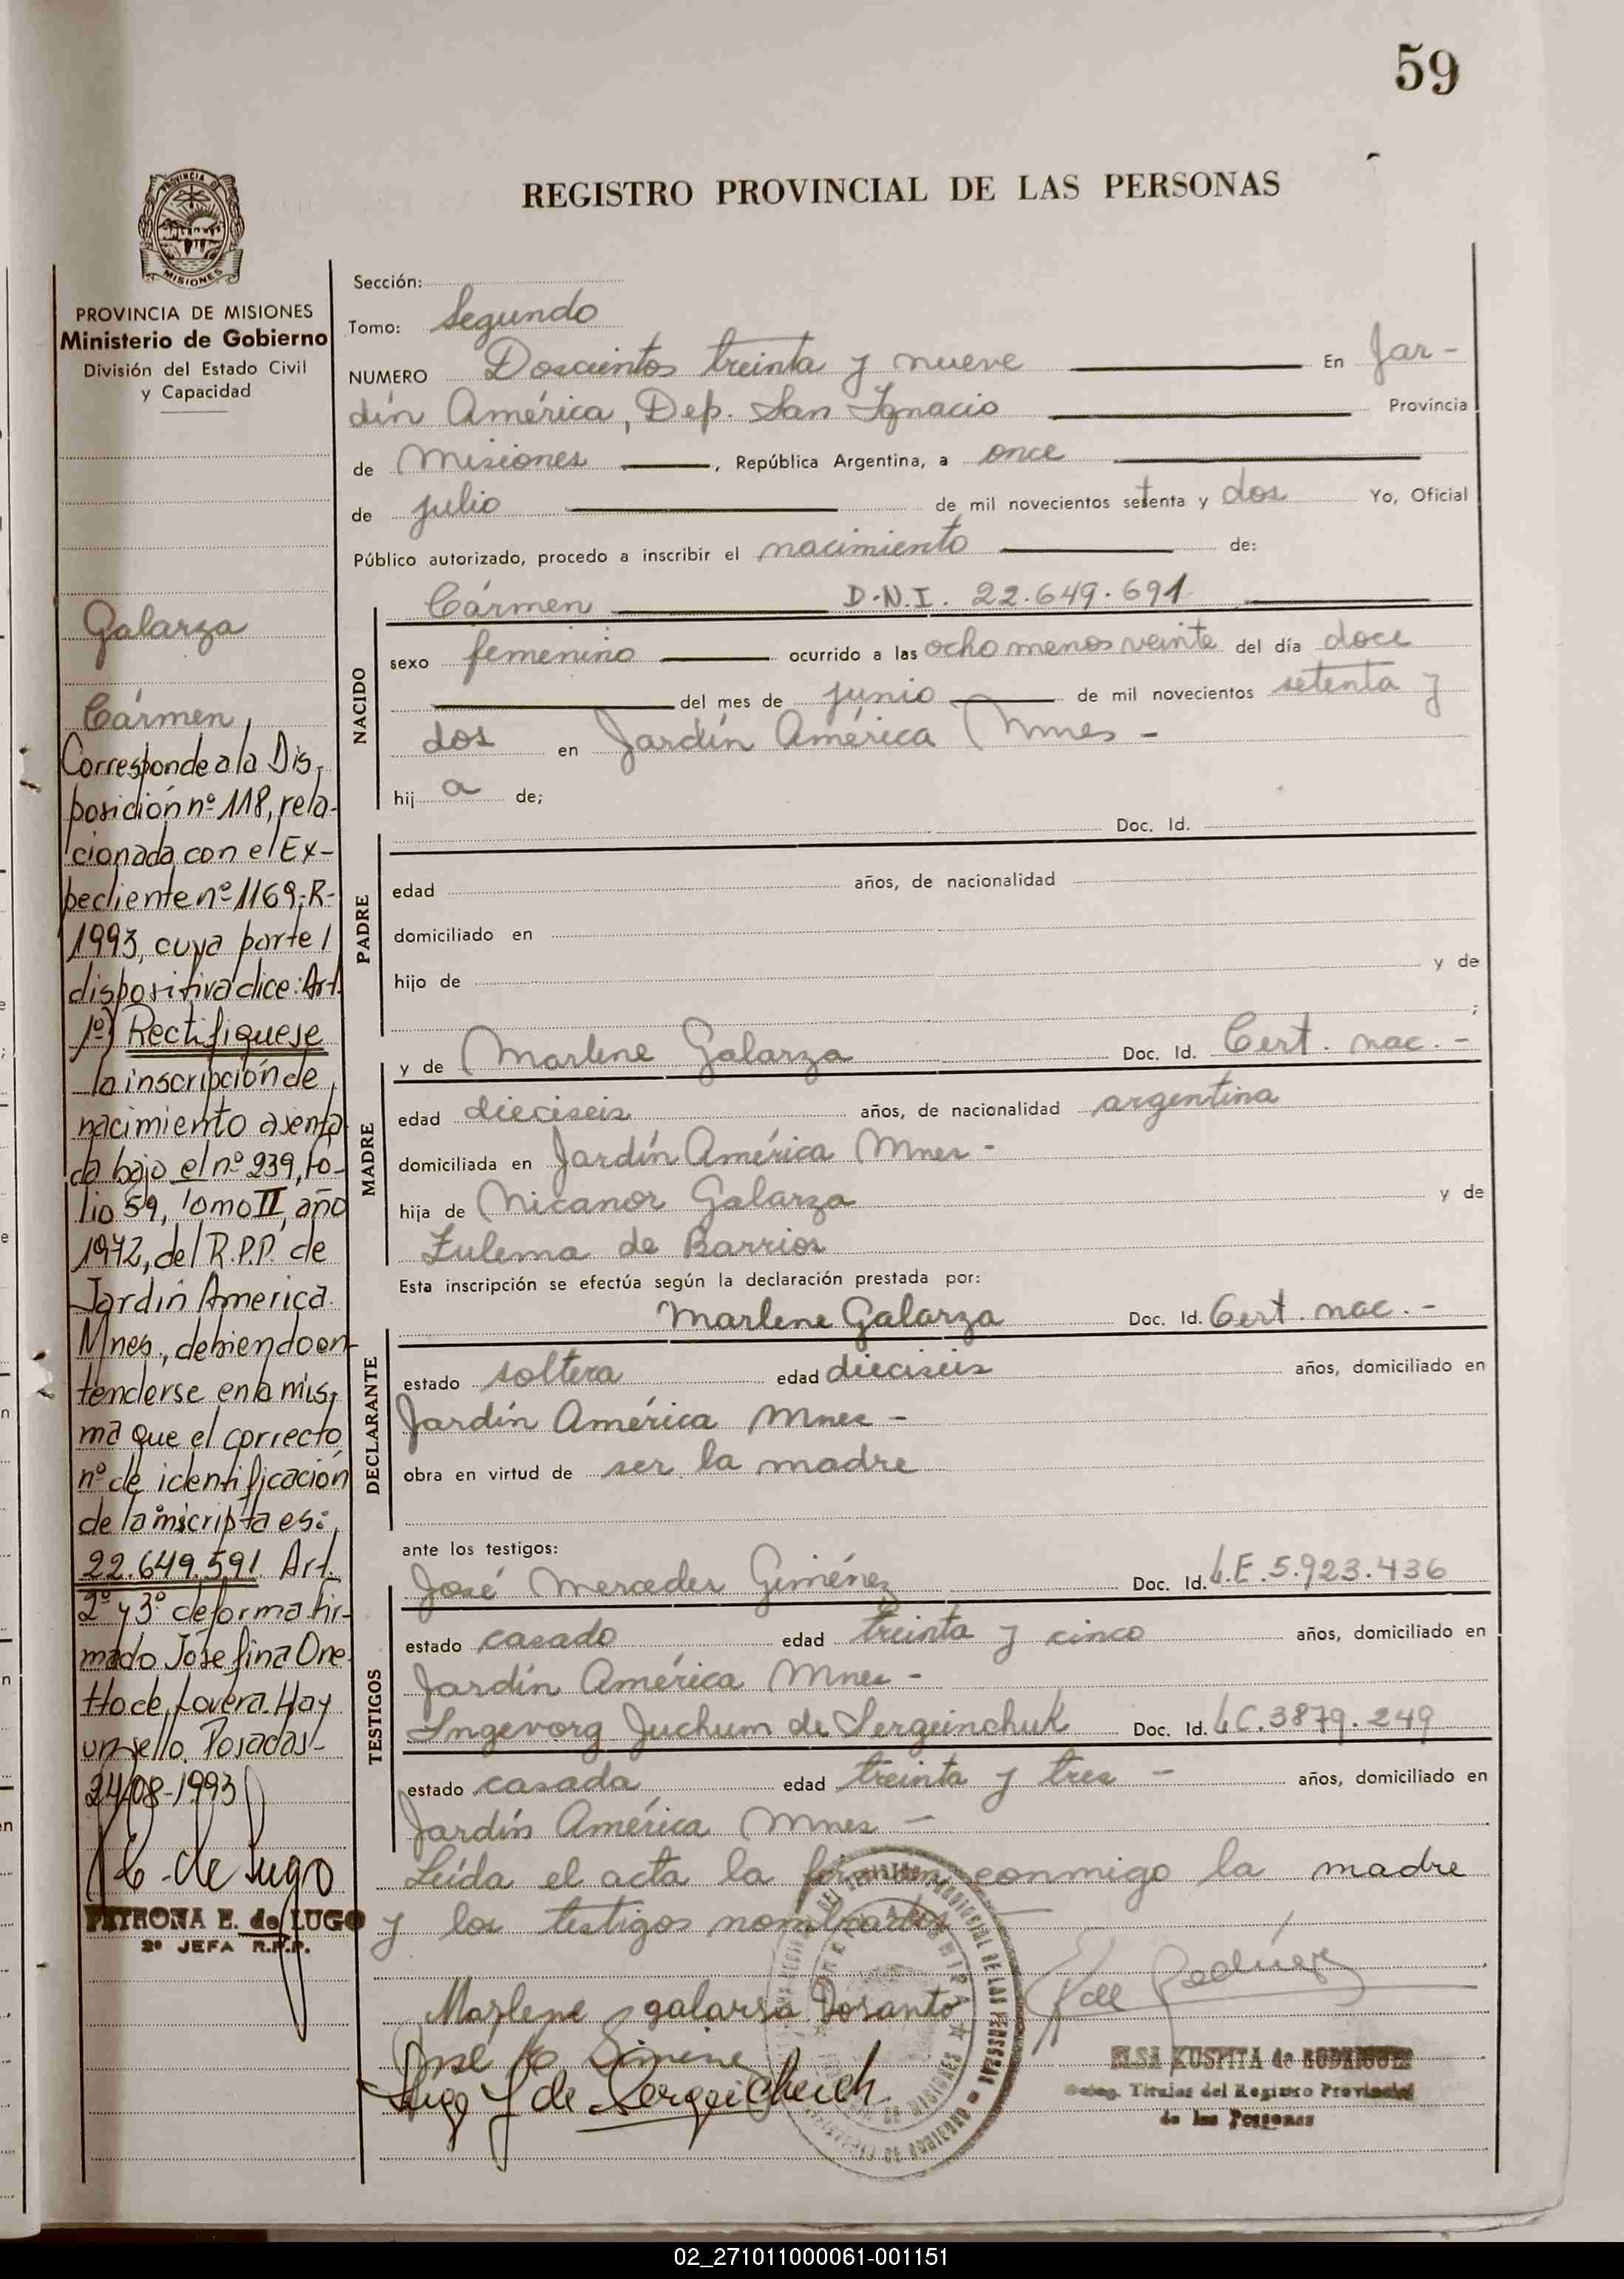 59
REGISTRO PROVINCIAL DE LAS PERSONAS
PROVINCIA DE
MISIONES
PROVINCIA DE MISIONES
Ministerio de Gobierno
División del Estado Civil
y Capacidad
Galarza
Cármen,
Corresponde a la Dis-
posición nº 118, rela-
cionada con el Ex-
pediente nº 1169-R-
1993, cuya parte
dispositiva dice: Art.
1º) Rectifiquese
la inscripción de
nacimiento asenta
da bajo el nº 239, Fo-
lio 59, Tomo II, año
1972, del R.P.P. de
Jardin America.
Mnes, debiendo en-
tenderse en la mis-
ma que el correcto
nº de identificación
de la inscripta es:
22.649.591. Art.
2º y 3º de forma fir-
mado Josefina One
tto de Lovera. Hay
un sello. Posadas-
24/08-1993
de Lugo
PETRONA E. de LUGO
2º JEFA R.P.P.
Sección:
Tomo: Segundo
NUMERO Doscientos treinta y nueve En Jar-
dín América, Dep. San Ignacio Provincia
de Misiones, República Argentina, a once
de julio de mil novecientos setenta y dos Yo, Oficial
Público autorizado, procedo a inscribir el nacimiento de:
NACIDO
Cármen D.N.I. 22.649.691
sexo femenino ocurrido a las ocho menos veinte del día doce
del mes de junio de mil novecientos setenta y
dos en Jardín América Mnes -
hij a de;
PADRE
Doc. Id.
edad años, de nacionalidad
domiciliado en
hijo de y de
;
MADRE
y de Marlene Galarza Doc. Id. Cert. nac. -
edad dieciseis años, de nacionalidad argentina
domiciliada en Jardín América Mnes -
hija de Nicanor Galarza y de
Zulema de Barrios
Esta inscripción se efectúa según la declaración prestada por:
DECLARANTE
Marlene Galarza Doc. Id. Cert. nac. -
estado soltera edad dieciseis años, domiciliado en
Jardín América Mnes -
obra en virtud de ser la madre
ante los testigos:
TESTIGOS
José Mercedes Giménez Doc. Id. L.E. 5.923.436
estado casado edad treinta y cinco años, domiciliado en
Jardín América Mnes -
Ingevorg Juchum de Sergeinchuk Doc. Id. L.C. 3879.249
estado casada edad treinta y tres - años, domiciliado en
Jardín América Mnes -
Leída el acta la firman conmigo la madre
y los testigos nombrados
Marlene galarsa Dosanto
José M Gimenez
Inge J de Sergeicheuk
ELSA KUSPITA de RODRIGUEZ
Encarg. Titular del Registro Provincial
de las Personas
02_271011000061-001151